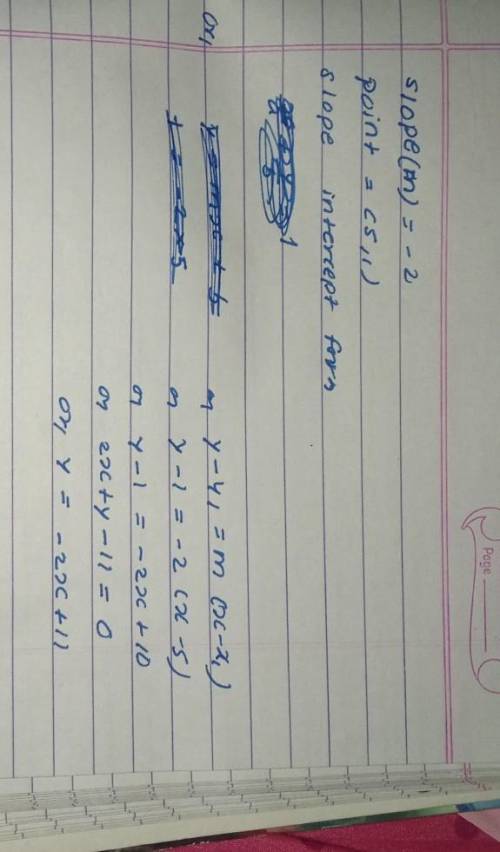 Page
slope(m) = -2
point = (5,1)
slope intercept form
or,
y = mx + b
or y-y1 = m (x-x1)
or y-1 = -2 (x-5)
or y-1 = -2x+10
or 2x+y-11 = 0
or, y = -2x+11